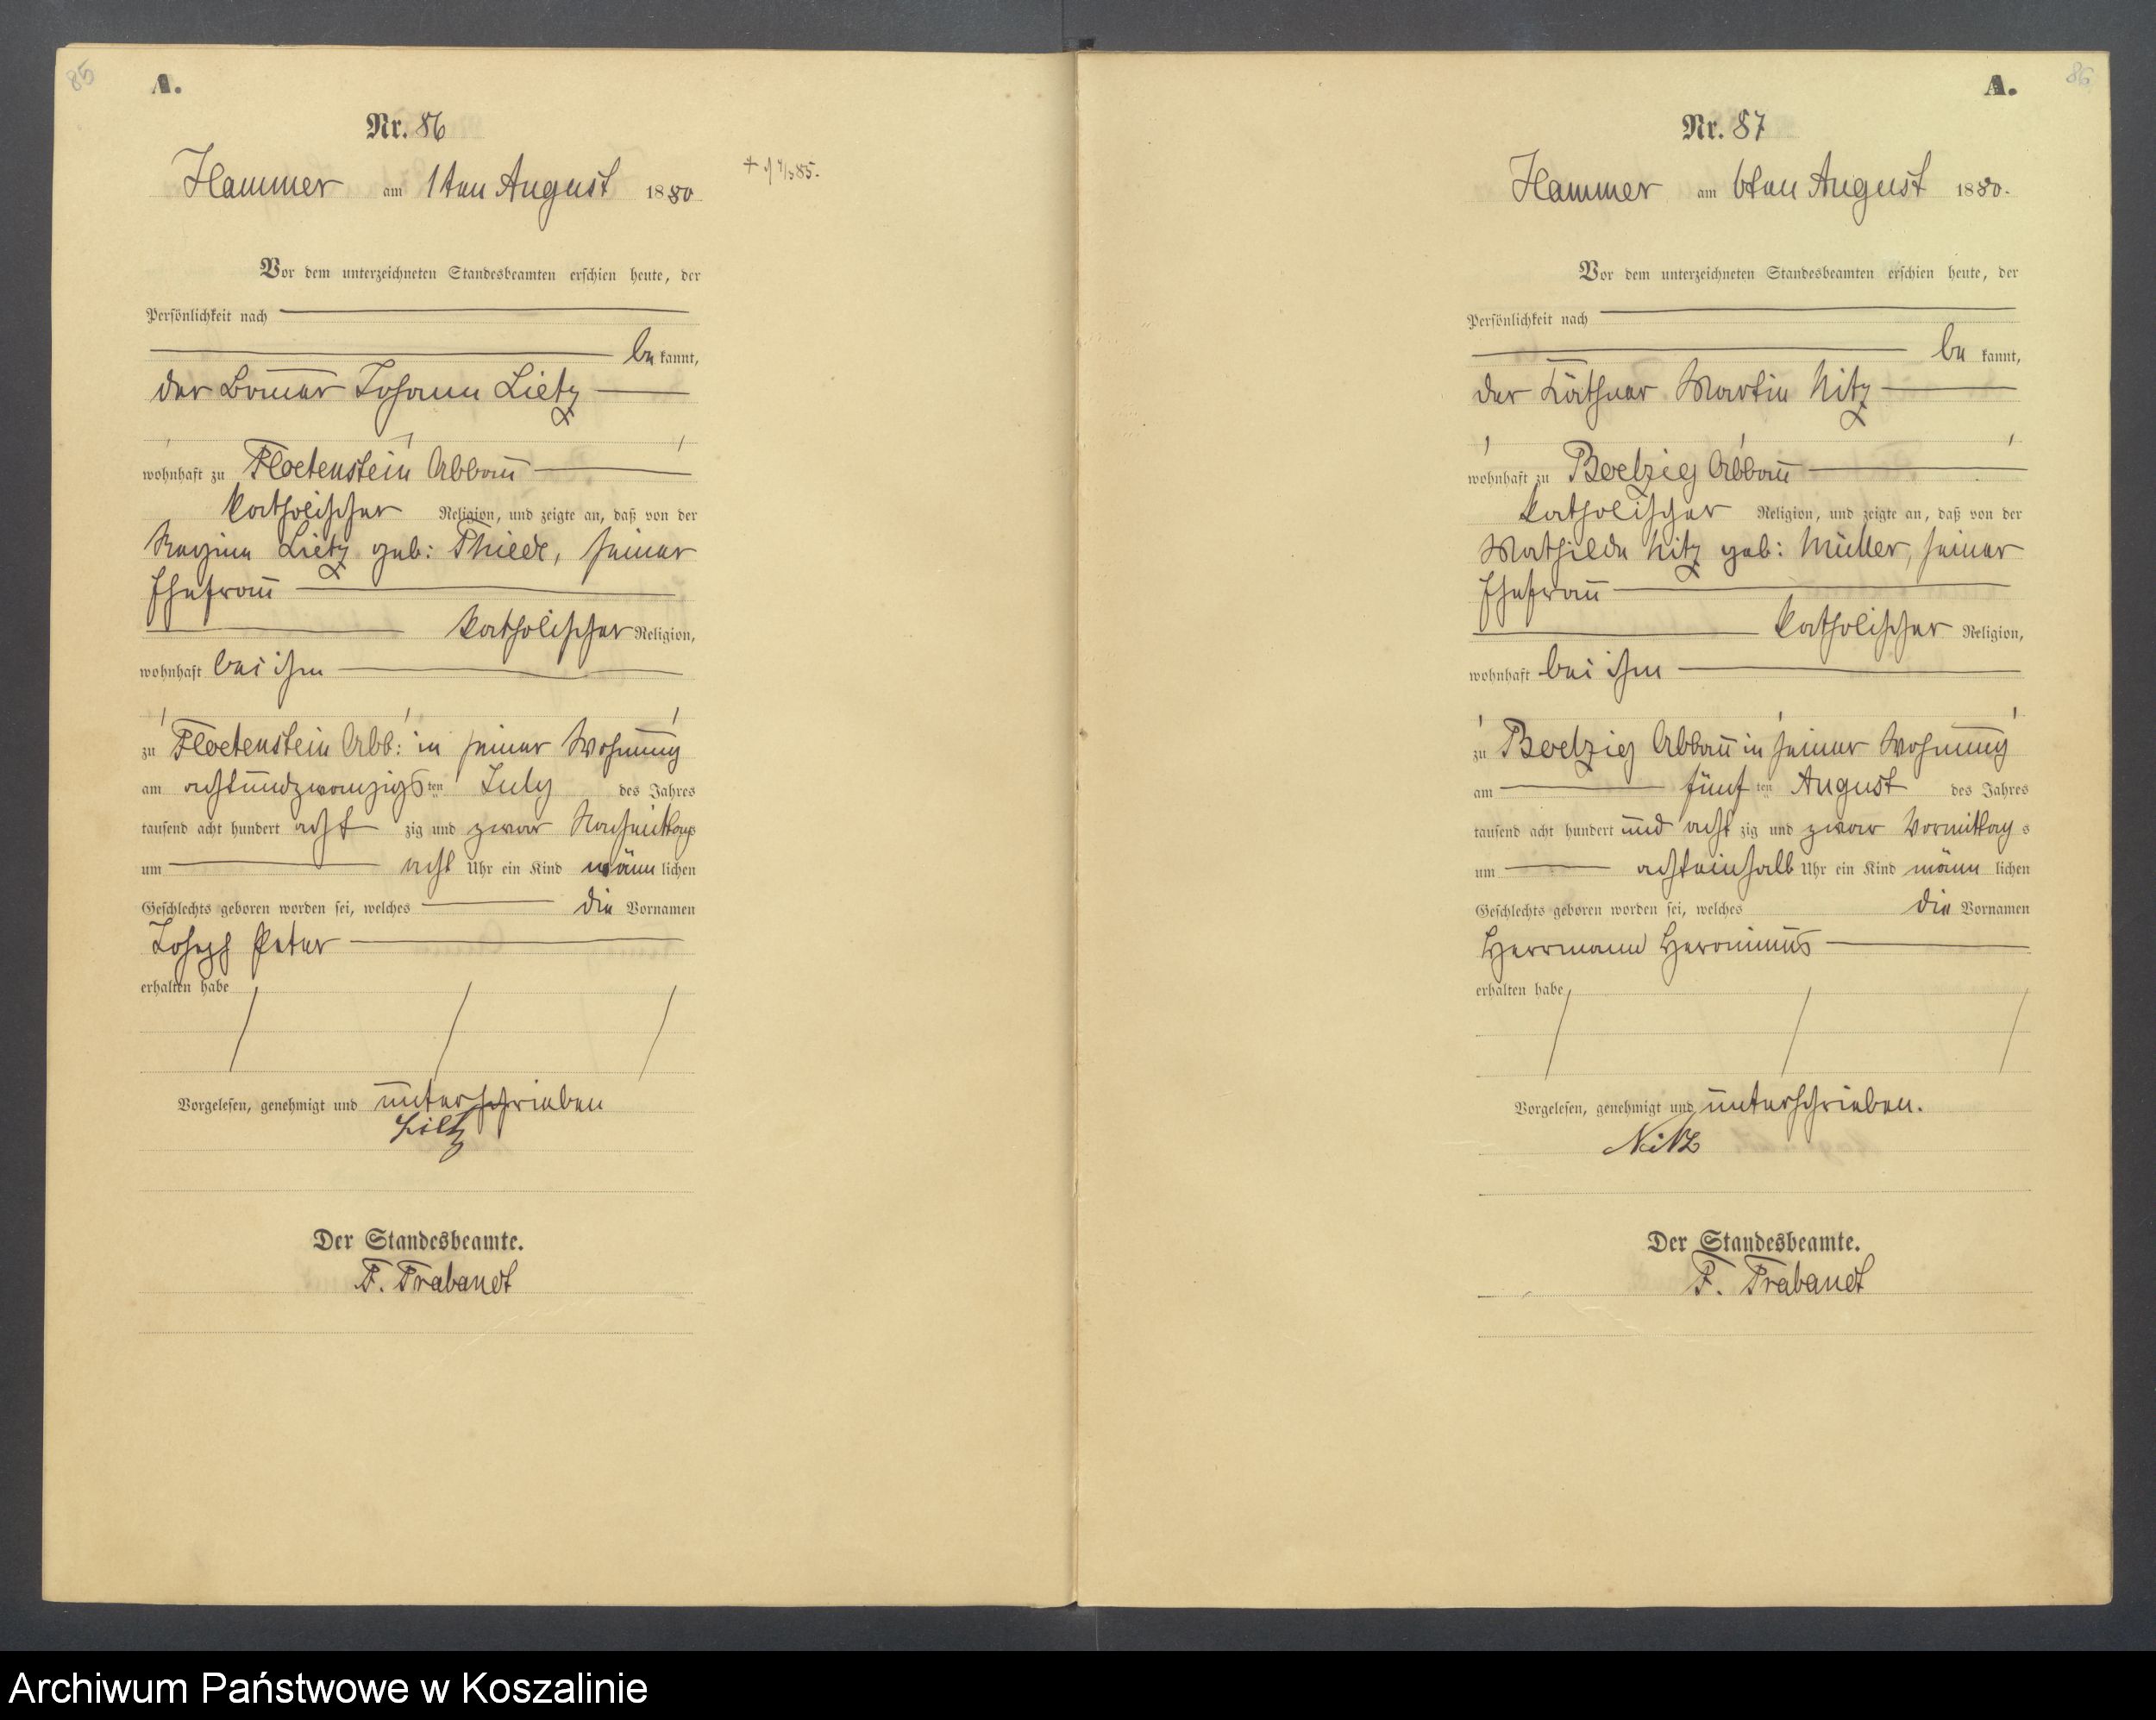 85
A.
Nr. 86
Hammer am 1ten August 1880
Vor dem unterzeichneten Standesbeamten erschien heute, der
Persönlichkeit nach
be kannt,
der Bauer Johann Lietz
wohnhaft zu Floetenstein Abbau
katholischer Religion, und zeigte an, daß von der
Regine Lietz geb: Thiede, seiner
Ehefrau
katholischer Religion,
wohnhaft bei ihm
zu Floetenstein Abb: in seiner Wohnung
am achtundzwanzigsten July des Jahres
tausend acht hundert acht zig und zwar Nachmittags
um acht Uhr ein Kind männ lichen
Geschlechts geboren worden sei, welches die Vornamen
Joseph Peter
erhalten habe
Vorgelesen, genehmigt und unterschrieben
Litz
Der Standesbeamte.
F. Trabandt
86
A.
Nr. 87
Hammer am 6ten August 1880.
Vor dem unterzeichneten Standesbeamten erschien heute, der
Persönlichkeit nach
be kannt,
der Käthner Martin Nitz
wohnhaft zu Boelzig Abbau
katholischer Religion, und zeigte an, daß von der
Mathilde Nitz geb: Müller, seiner
Ehefrau
katholischer Religion,
wohnhaft bei ihm
zu Boelzig Abbau in seiner Wohnung
am fünf ten August des Jahres
tausend acht hundert und acht zig und zwar Vormittag s
um achteinhalb Uhr ein Kind männ lichen
Geschlechts geboren worden sei, welches die Vornamen
Herrmann Heronimus
erhalten habe
Vorgelesen, genehmigt und unterschrieben.
Nitz
Der Standesbeamte.
F. Trabandt
Archiwum Państwowe w Koszalinie